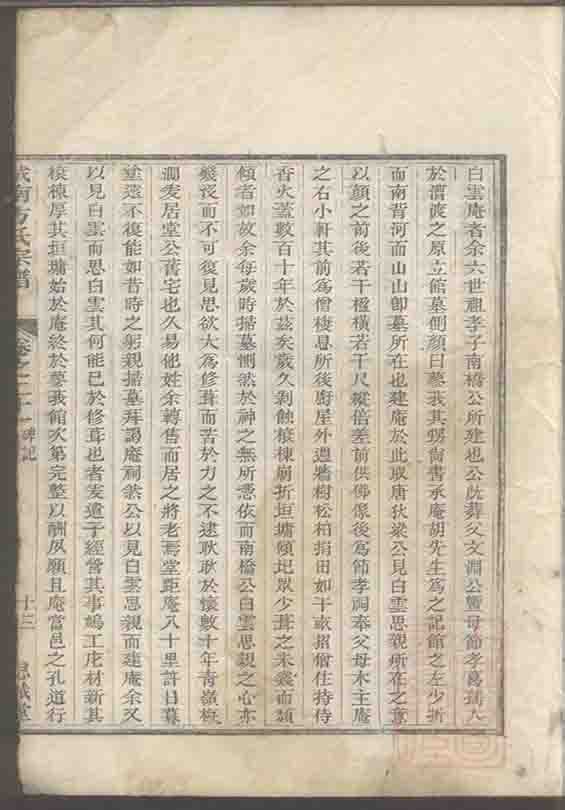 白雲庵者余六世祖孝子南橋公所建也公既葬父文淵公暨母節孝葛孺人
於漕渡之原立館墓側顏曰蓼莪其甥尚書承庵胡先生為之記館之左少折
而南背河而山山卽墓所在也建庵於此取唐狄梁公見白雲思親所在之意
以顏之前後若干楹橫若干尺縱倍差前供佛像後為節孝祠奉父母木主庵
之右小軒其前為僧棲息所後廚屋外遶牆樹松柏捐田如干畝招僧住持侍
香火蓋數百十年於茲矣歲久剝蝕榱棟崩折垣墉傾圮眾少葺之未幾而頹
傾者如故余每歲時掃墓惻然於神之無所憑依而南橋公白雲思親之心亦
幾夜而不可復見思欲大為修葺而苦於力之不逮耿耿於懷數十年青嶺楓
澗爰居堂公舊宅也久易他姓余轉售而居之將老焉堂距庵八十里許日暮
塗遠不復能如昔時之躬親掃墓拜謁庵祠然公以見白雲思親而建庵余又
以見白雲而思白雲其何能已於修葺也者爰遣子經營其事鳩工庀材新其
榱棟厚其垣墉始於庵終於蓼莪館次第完整以酬夙願且庵當邑之孔道行
南方氏宗譜 卷之二 碑記 十三